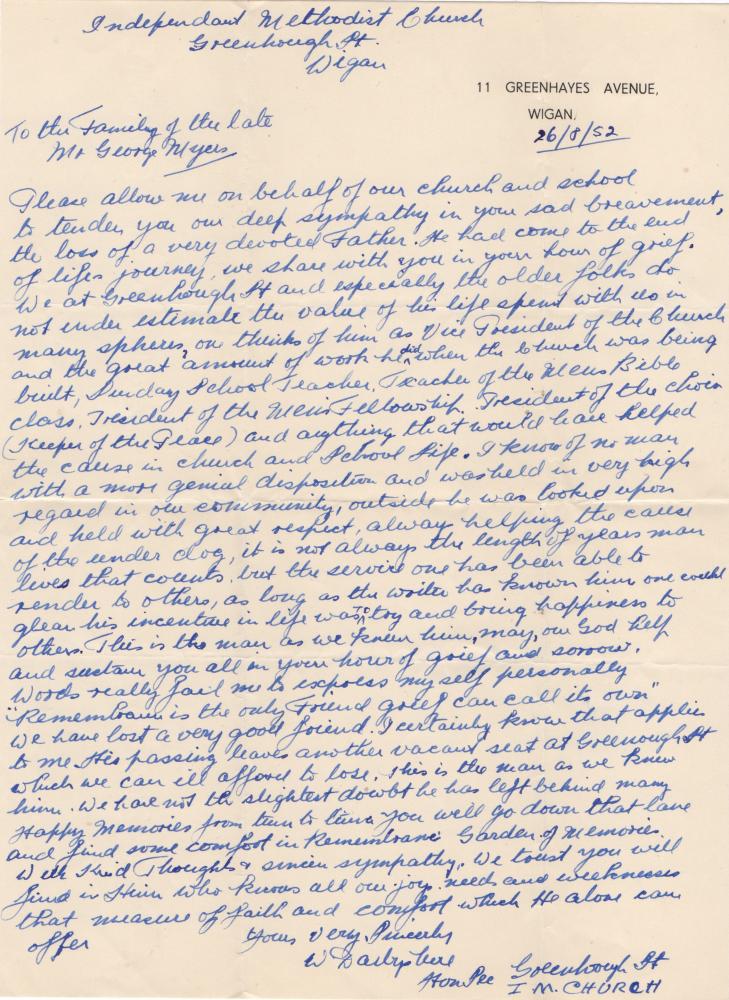 Independant Methodist Church
Greenhough St.
Wigan
11 GREENHAYES AVENUE,
WIGAN.
26/8/52
To the Family of the late
Mr George Myers
Please allow me on behalf of our church and school
to tender you our deep sympathy in your sad breavement,
the loss of a very devoted Father. He had come to the end
of life's journey, we share with you in your hour of grief.
We at Greenhough St and especially the older folks do
not under estimate the value of his life spent with us in
many spheres, one thinks of him as Vice President of the Church
and the great amount of work he did when the Church was being
built, Sunday School Teacher, Teacher of the Mens Bible
Class, President of the Mens Fellowship. President of the choir
(Keeper of the Peace) and anything that would have helped
the cause in church and School Life. I know of no man
with a more genial disposition and was held in very high
regard in our community, outside he was looked upon
and held with great respect, always helping the cause
of the under dog, it is not always the length of years man
lives that counts, but the service one has been able to
render to others, as long as the writer has known him one could
glean his incentive in life was to try and bring happiness to
others. This is the man as we knew him, may, our God help
and sustain you all in your hour of grief and sorrow.
Words really fail me to express myself personally
"Remembrance is the only Friend grief can call its own"
We have lost a very good friend. I certainly know that applies
to me. His passing leaves another vacant seat at Greenough St
which we can ill afford to lose. This is the man as we knew
him. We have not the slightest doubt he has left behind many
Happy Memories from time to time you will go down that lane
and find some comfort in Remembrance Garden of Memories.
With Kind Thoughts & sincere sympathy. We trust you will
find in Him who knows all our joys needs and weaknesses
that measure of faith and comfort which He alone can
offer
Yours Very Sincerely
W Darbyshire
Hon Sec Greenhough St
I M. CHURCH